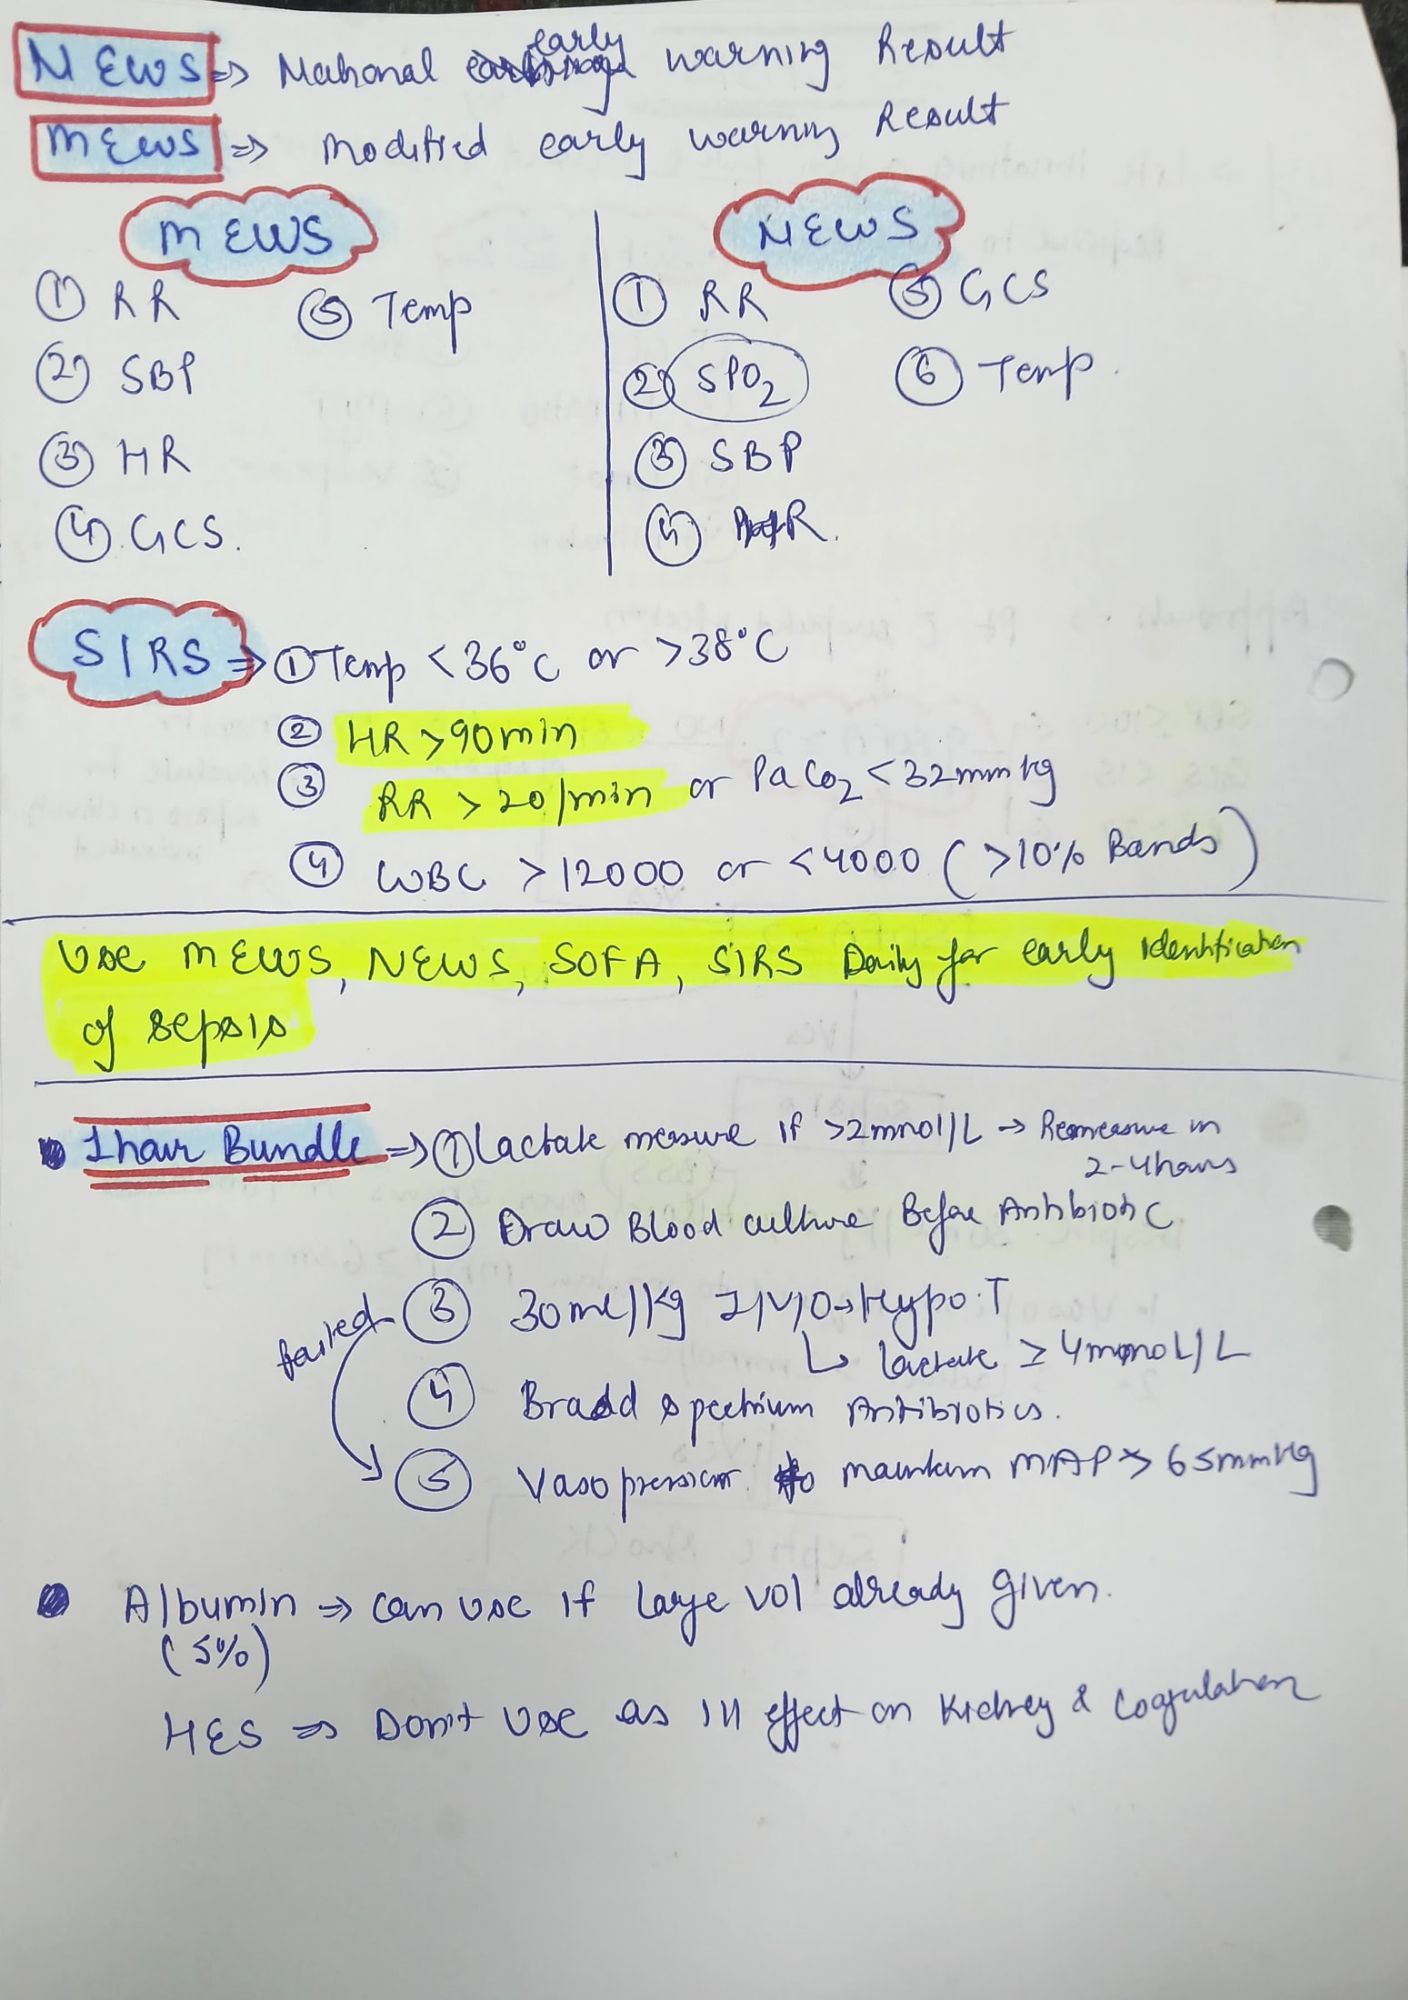 NEWS => National early warning Result
MEWS => Modified early warning Result
MEWS
① RR
② SBP
③ HR
④ GCS.
⑤ Temp
NEWS
① RR
② SPO2
③ SBP
④ HR.
⑤ GCS
⑥ Temp.
SIRS => ① Temp <36°C or >38°C
② HR >90min
③ RR > 20/min or PaCO2 <32mmHg
④ WBC >12000 or <4000 (>10% Bands)
Use MEWS, NEWS, SOFA, SIRS Daily for early identification
of sepsis
1 hour Bundle => ① Lactate measure if >2mmol/L → Remeasure in
2-4 hours
② Draw Blood culture Before Antibiotic
③ 30ml/kg I/V/O → Hypo.T
↳ lactate ≥ 4mmol/L
failed
④ Broad spectrium Antibiotics.
⑤ Vasopressor to maintain MAP > 65mmHg
Albumin => can use if large vol already given.
(5%)
HES => Don't use as ill effect on Kidney & Coagulation